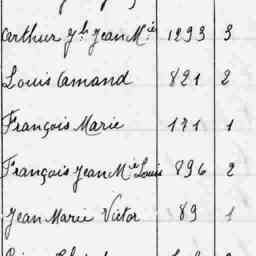 Arthur Yb Jean Mie 1293 3
Louis Amand 821 2
François Marie 171 1
François Jean Mie Louis 896 2
Jean Marie Victor 89 1